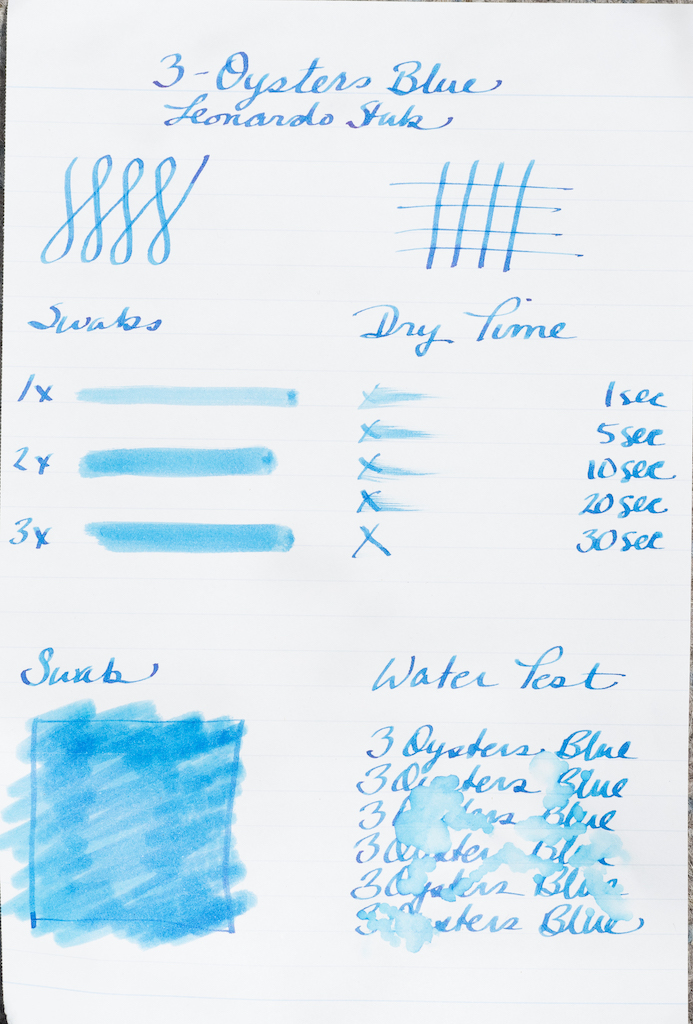 3-Oysters Blue
Leonardo Stub
Swabs
Dry Time
1x
2x
3x
X 1sec
X 5sec
X 10sec
X 20sec
X 30sec
Swab
Water Test
3 Oysters Blue
3 Oysters Blue
3 Oysters Blue
3 Oysters Blue
3 Oysters Blue
3 Oysters Blue